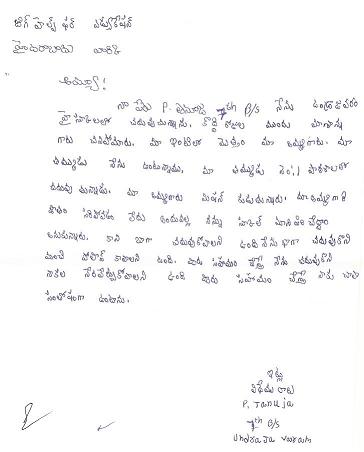 బిగ్ హెల్ప్ ఫర్ ఎడ్యుకేషన్
హైదరాబాదు వారికి
అయ్యా!
నా పేరు P. తనూజ 7th B/S నేను ఉండ్రాజవరం
హైస్కూలులో చదువుచున్నాను. కొద్ది రోజుల ముందు మా నాన్న
గారు చనిపోయారు. మా ఇంటిలో మొత్తం మా అమ్మగారు. మా
తమ్ముడు నేను ఉంటున్నాము. మా తమ్ముడు నెం.1 పాఠశాలలో
చదువు చున్నాడు. మా అమ్మగారు మిషన్ కుడుచున్నారు. మా అమ్మగారి
జీతం సరిపోవడం లేదు అందువల్ల నన్ను స్కూల్ మానిపించేద్దాం
అనుకున్నారు. కాని బాగా చదువుకోవాలని ఉంది నేను బాగా చదువుకొని
మంచి పోలీస్ కావాలని ఉంది. మీరు సహాయం చేస్తే నేను చదువుకొని
నా కల నేరవేర్చుకోవాలని ఉంది మీరు సహాయం చేస్తే నాకు చాలా
సంతోషంగా ఉంటాను.
ఇట్లు
విధేయు రాలు
P. Tanuja
7th B/S
Undraja Varam